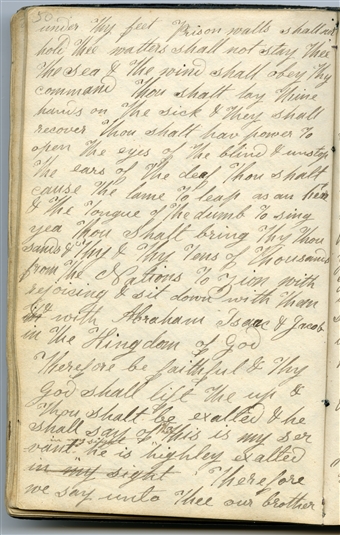 30
under thy feet Prison walls shall not
hold thee watters shall not stay thee
the sea & the wind shall obey thy
command thou shalt lay thine
hands on the sick & they shall
recover thou shalt hav power to
open the eyes of the blind & unstop
the ears of the deaf thou shalt
cause the lame to leap as an heart
& the tongue of the dumb to sing
yea thou shalt bring thy thou
sands & thy & thy tens of thousands
from the Nations to Zion with
rejoicing & sit down with them
with Abraham Isaac & Jacob
in the Kingdom of God
Therefore be faithful & thy
God shall lift the up &
thou shalt be exalted & he
shall say of the this is my ser
vant he is highley exalted
in my sight
in my sight Therefore
we say unto thee our brother